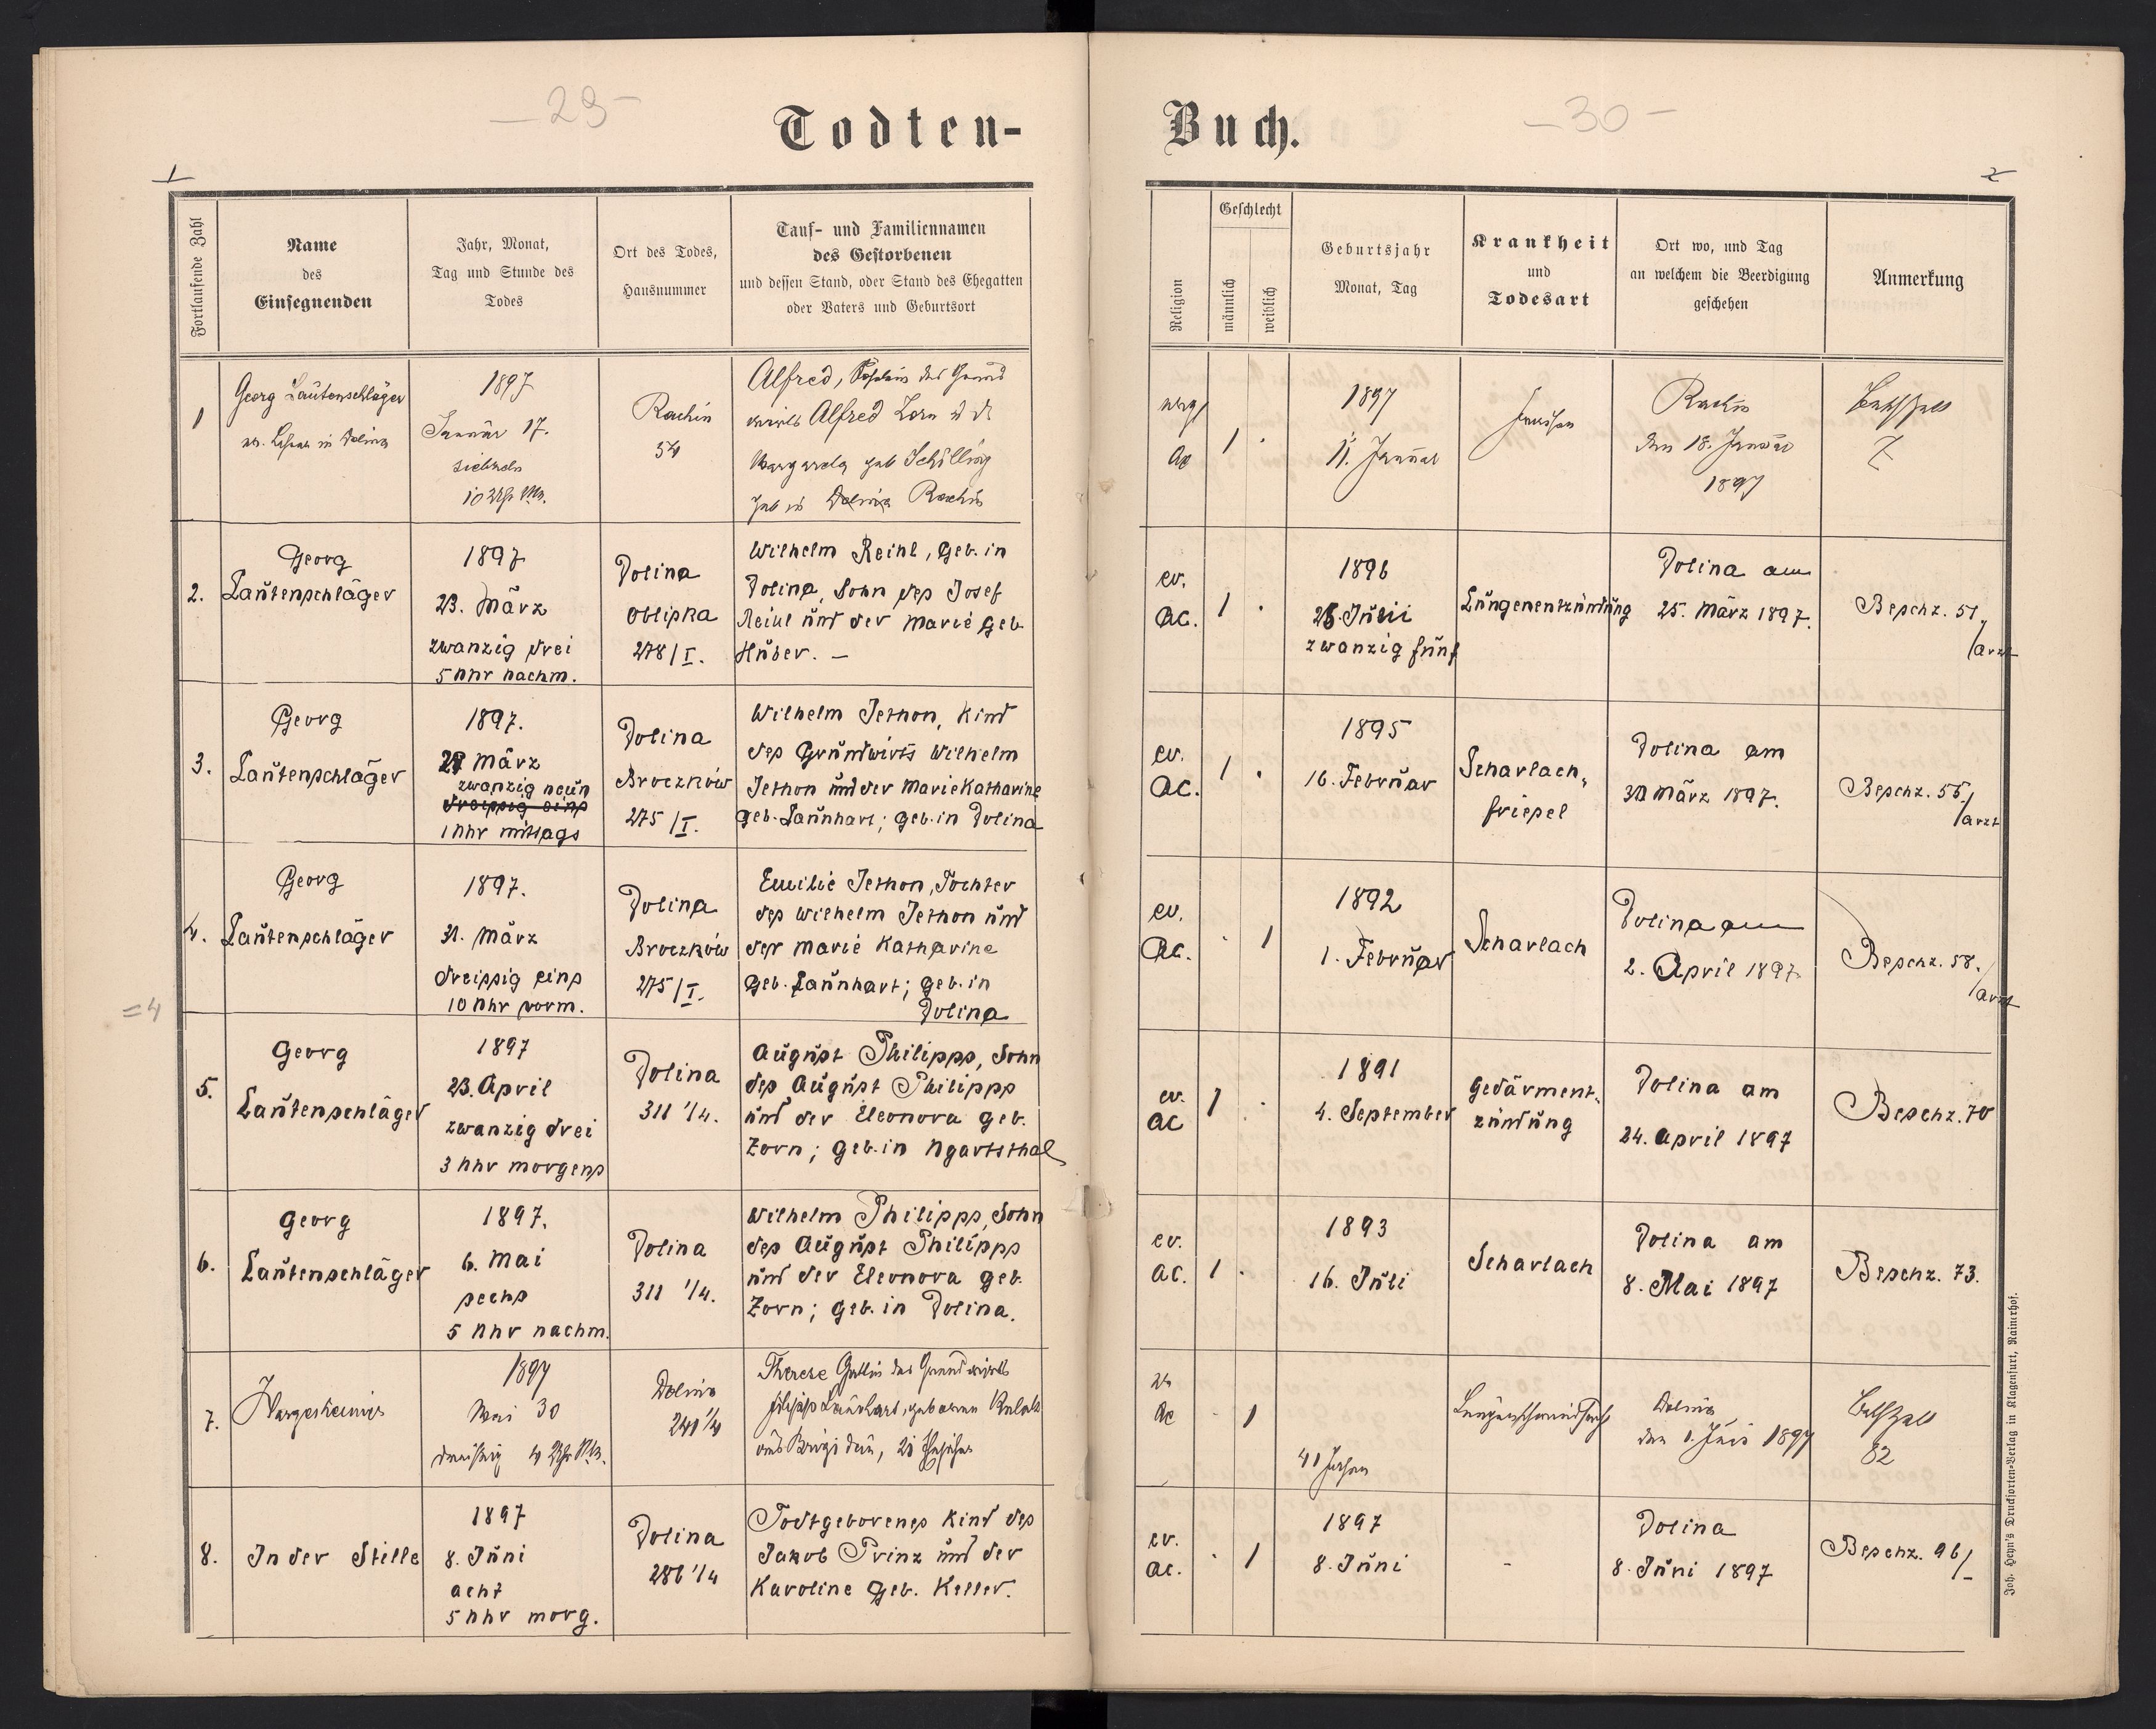 — 29 —
Todten-
1
Fortlaufende Zahl
Name
des
Einsegnenden
Jahr, Monat,
Tag und Stunde des
Todes
Ort des Todes,
Hausnummer
Tauf- und Familiennamen
des Gestorbenen
und dessen Stand, oder Stand des Ehegatten
oder Vaters und Geburtsort
1
Georg Lautenschläger
in Dolina
1897
Januar 17.
siebzehn
10 Uhr
Rachin
Alfred, des Grund
wirts Alfred Zorn
Margareta geb Schilling
Geb in Dolina Rachin
2.
Georg
Lautenschläger
1897
23. März
zwanzig drei
5 Uhr nachm.
Dolina
Oblipka
278/I.
Wilhelm Reihl, geb. in
Dolina, Sohn des Josef
Reihl und der Marie geb.
Huber. —
3.
Georg
Lautenschläger
1897.
29 März
zwanzig neun
dreissig eins
1 Uhr mittags
Dolina
Broczków
275/I.
Wilhelm Jethon, Kind
des Grundwirts Wilhelm
Jethon und der Marie Katharine
geb. Launhart; geb. in Dolina
4.
Georg
Lautenschläger
1897.
31. März
dreissig eins
10 Uhr vorm.
Dolina
Broczków
275/I.
Emilie Jethon, Tochter
des Wilhelm Jethon und
der Marie Katharine
geb. Launhart; geb. in
Dolina
= 4
5.
Georg
Lautenschläger
1897
23. April
zwanzig drei
3 Uhr morgens
Dolina
311 1/4.
August Philipps, Sohn
des August Philipps
und der Eleonora geb.
Zorn; geb. in Ugartsthal
6.
Georg
Lautenschläger
1897.
6. Mai
sechs
5 Uhr nachm.
Dolina
311 1/4.
Wilhelm Philipps, Sohn
des August Philipps
und der Eleonora geb.
Zorn; geb. in Dolina.
7.
Hargesheimer
1897
Mai 30
dreißig 4 Uhr
Dolina
241 1/4
Therese Gattin des Grundwirts
Filipp Launhart, geborene
aus Brigidau,
8.
In der Stille
1897
8. Juni
acht
5 Uhr morg.
Dolina
286 1/4
Todtgeborenes Kind des
Jakob Prinz und der
Karoline geb. Keller.
Buch.
— 30 —
2
Religion
Geschlecht
männlich
weiblich
Geburtsjahr
Monat, Tag
Krankheit
und
Todesart
Ort wo, und Tag
an welchem die Beerdigung
geschehen
Anmerkung
evg
AC
1 .
1897
11. Januar
Fraisen
Rachin
den 18. Januar
1897
7
ev.
AC.
1 .
1896
25. Julii
zwanzig fünf
Lungenentzündung
Dolina am
25. März 1897.
Beschz. 51.
/arzt
ev.
AC.
1 .
1895
16. Februar
Scharlach-
friesel
Dolina am
30 März 1897.
Beschz. 56./
/arzt
ev.
AC.
. 1
1892
1. Februar
Scharlach
Dolina am
2. April 1897
Beschz. 58./
/arzt
ev.
AC
1 .
1891
4. September
Gedärment-
zündung
Dolina am
24. April 1897
Beschz. 70
ev.
AC.
1 .
1893
16. Juli
Scharlach
Dolina am
8. Mai 1897
Beschz. 73.
ev
AC
. 1
41 Jahre
Lungenschwindsucht
Dolina
den 1. Juni 1897
82
ev.
AC.
. 1
1897
8. Juni
-
Dolina
8. Juni 1897
Beschz. 96/-
Joh. Heyn's Drucksorten-Verlag in Klagenfurt, Rainerhof.